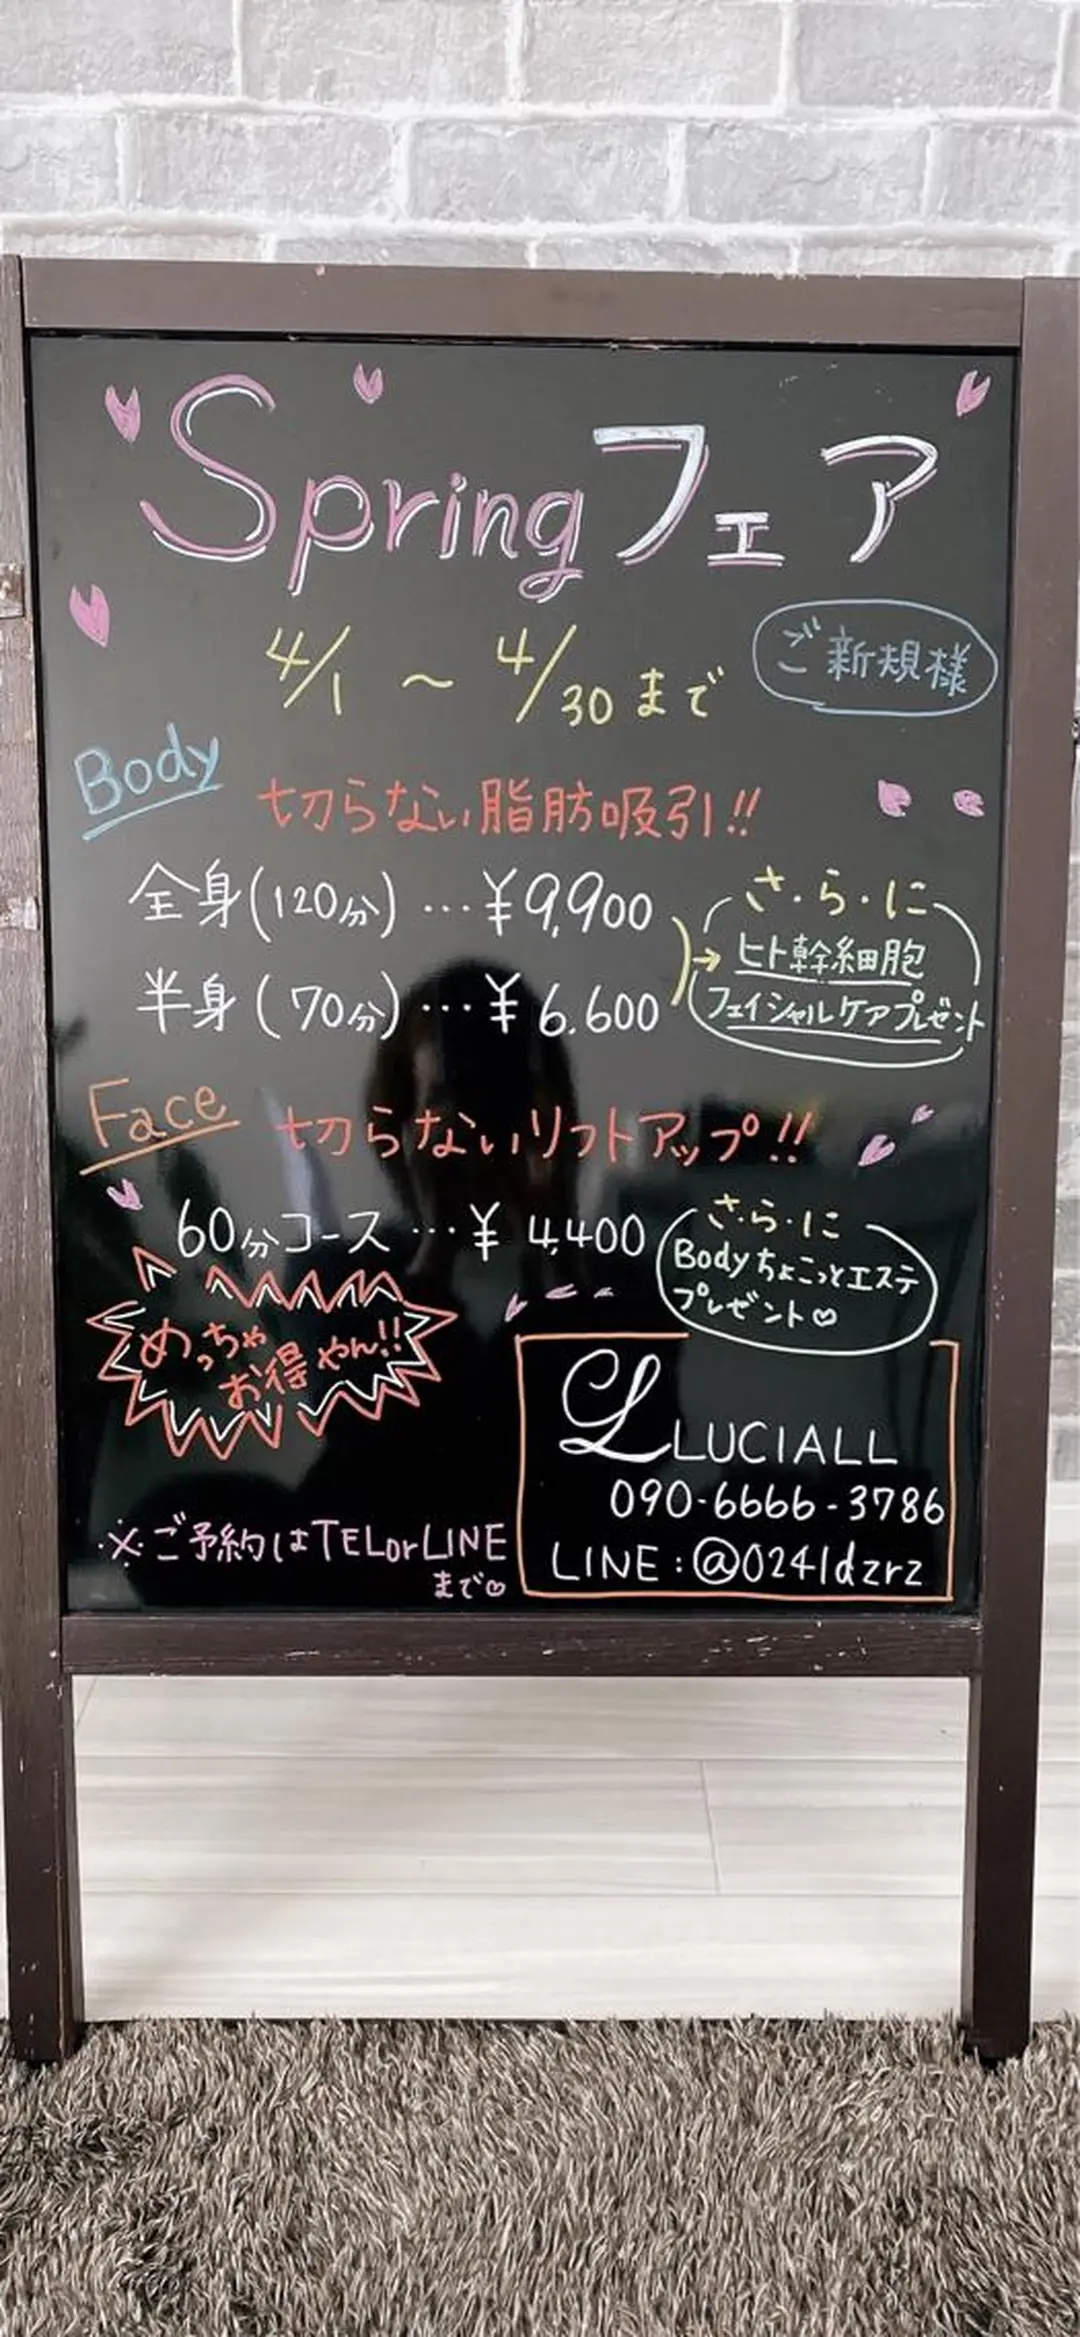 Springフェア
4/1 ～ 4/30まで
ご新規様
Body
切らない脂肪吸引!!
全身(120分)…¥9,900
半身(70分)…¥6.600
さ・ら・に
ヒト幹細胞
フェイシャルケアプレゼント
Face
切らないリフトアップ!!
60分コース…¥4,400
さ・ら・に
Bodyちょこっとエステ
プレゼント♡
めっちゃ
お得やん!!
L LUCIALL
090-6666-3786
LINE:@0241dzrz
※ご予約はTELorLINE
まで♡